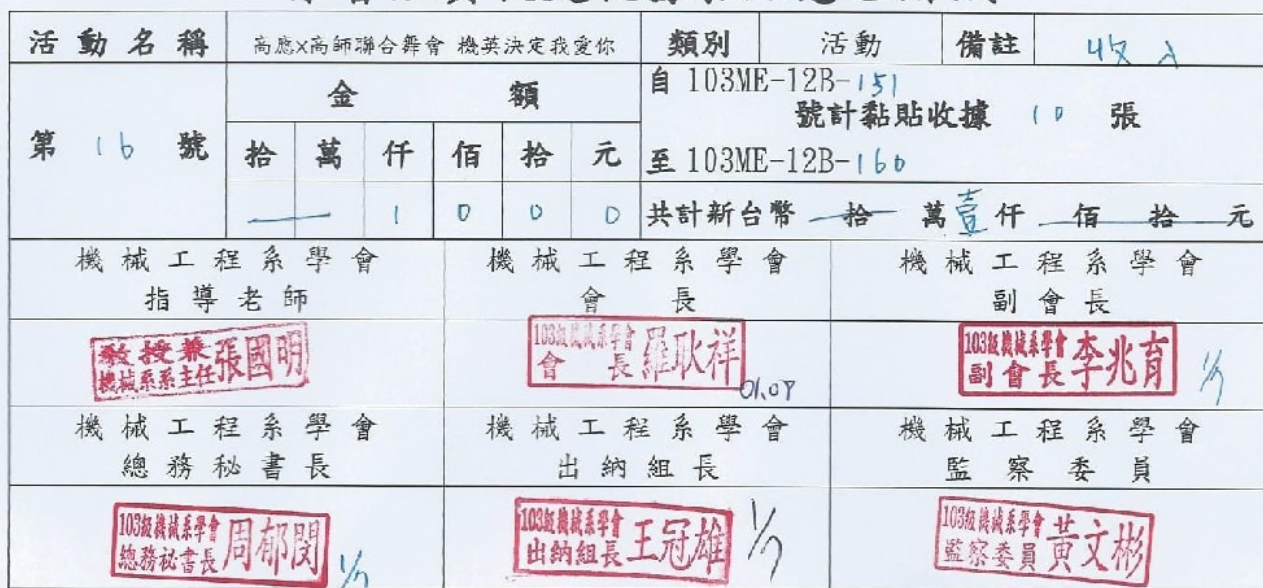 活動名稱 高應x高師聯合舞會 機英決定我愛你 類別 活動 備註 收入
第 16 號
金額
拾 萬 仟 佰 拾 元
1 0 0 0
自 103ME-12B-151
號計黏貼收據 10 張
至 103ME-12B-160
共計新台幣 拾 萬 壹 仟 佰 拾 元
機械工程系學會 機械工程系學會 機械工程系學會
指導老師 會長 副會長
教授兼 機械系系主任 張國明
103級機械系學會 會長 羅耿祥 01.09
103級機械系學會 副會長 李兆育 1/7
機械工程系學會 機械工程系學會 機械工程系學會
總務秘書長 出納組長 監察委員
103級機械系學會 總務祕書長 周郁閔 1/7
103級機械系學會 出納組長 王冠雄 1/7
103級機械系學會 監察委員 黃文彬